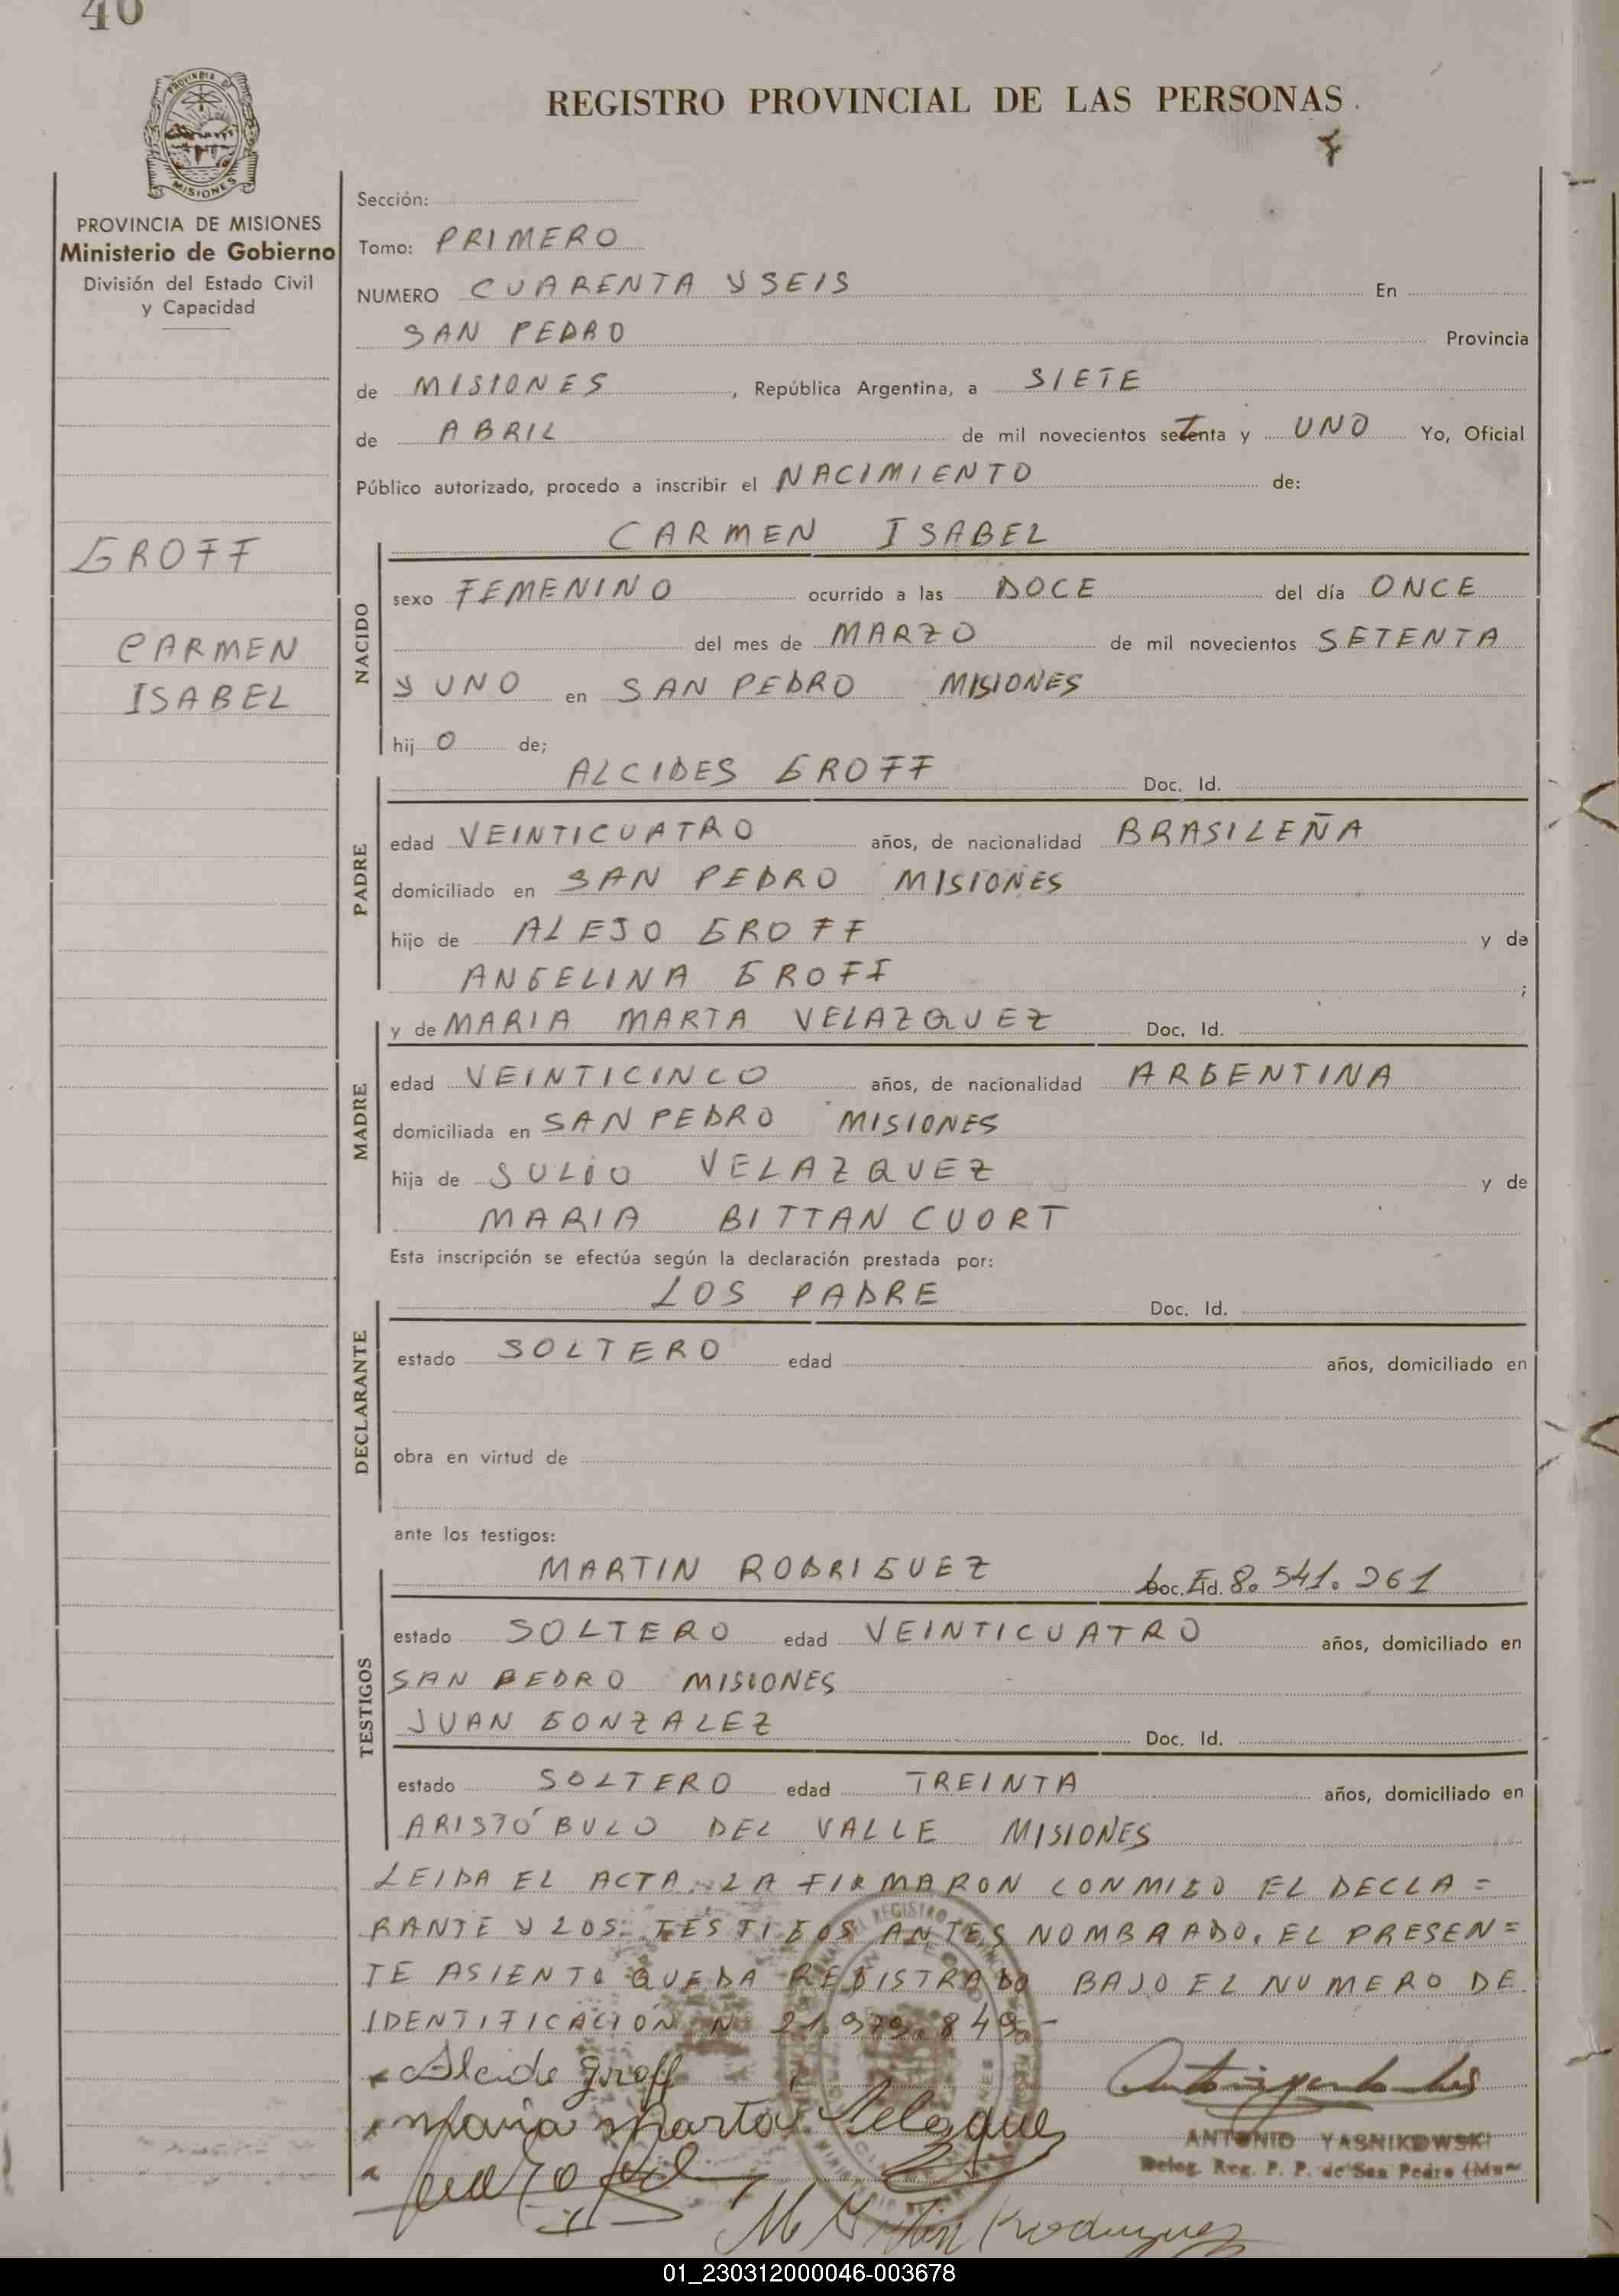 40
REGISTRO PROVINCIAL DE LAS PERSONAS
PROVINCIA DE MISIONES
MISIONES
PROVINCIA DE MISIONES
Ministerio de Gobierno
División del Estado Civil
y Capacidad
GROFF
CARMEN
ISABEL
Sección:
Tomo: PRIMERO
NUMERO CUARENTA Y SEIS En
SAN PEDRO Provincia
de MISIONES, República Argentina, a SIETE
de ABRIL de mil novecientos setenta y UNO Yo, Oficial
Público autorizado, procedo a inscribir el NACIMIENTO de:
NACIDO
CARMEN ISABEL
sexo FEMENINO ocurrido a las DOCE del día ONCE
del mes de MARZO de mil novecientos SETENTA
Y UNO en SAN PEDRO MISIONES
hij O de;
PADRE
ALCIDES GROFF Doc. Id.
edad VEINTICUATRO años, de nacionalidad BRASILEÑA
domiciliado en SAN PEDRO MISIONES
hijo de ALEJO GROFF y de
ANGELINA GROFF ;
MADRE
y de MARIA MARTA VELAZQUEZ Doc. Id.
edad VEINTICINCO años, de nacionalidad ARGENTINA
domiciliada en SAN PEDRO MISIONES
hija de JULIO VELAZQUEZ y de
MARIA BITTAN CUORT
Esta inscripción se efectúa según la declaración prestada por:
DECLARANTE
LOS PADRE Doc. Id.
estado SOLTERO edad años, domiciliado en
obra en virtud de
ante los testigos:
TESTIGOS
MARTIN RODRIGUEZ Doc. Id. 8.541.261
estado SOLTERO edad VEINTICUATRO años, domiciliado en
SAN PEDRO MISIONES
JUAN GONZALEZ Doc. Id.
estado SOLTERO edad TREINTA años, domiciliado en
ARISTÓBULO DEL VALLE MISIONES
LEIDA EL ACTA, LA FIRMARON CONMIGO EL DECLA =
RANTE Y LOS TESTIGOS ANTES NOMBRADO. EL PRESEN =
TE ASIENTO QUEDA REGISTRADO BAJO EL NUMERO DE
IDENTIFICACIÓN N 21.979.849.-
Alcide Groff
Maria Marta Velazque
ANTONIO YASNIKOWSKI
Deleg. Reg. P. P. de San Pedro (Mnes
Martin Rodriguez
01_230312000046-003678